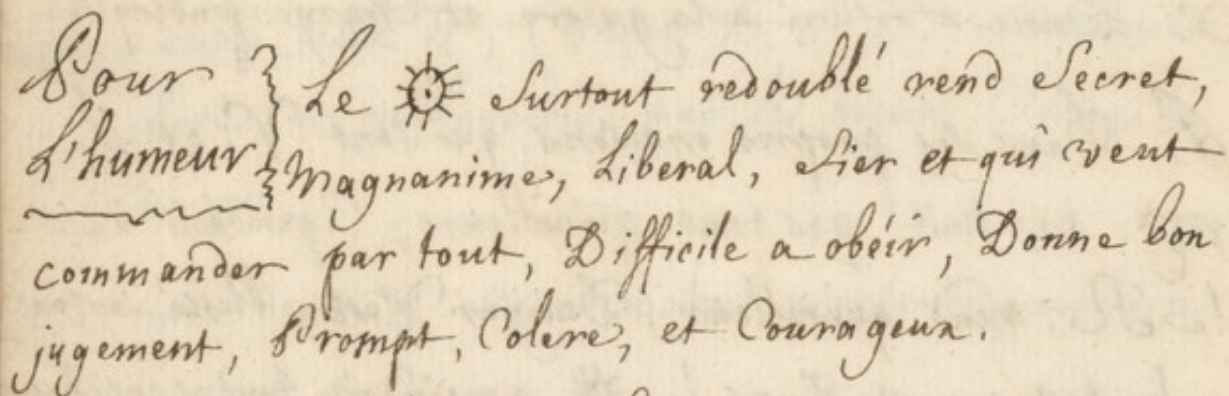 Pour
L'humeur
Le ☉ Surtout redoublé rend Secret,
Magnanime, Liberal, fier et qui veut
commander par tout, Difficile a obéir, Donne bon
jugement, Prompt, Colere, et Courageux.